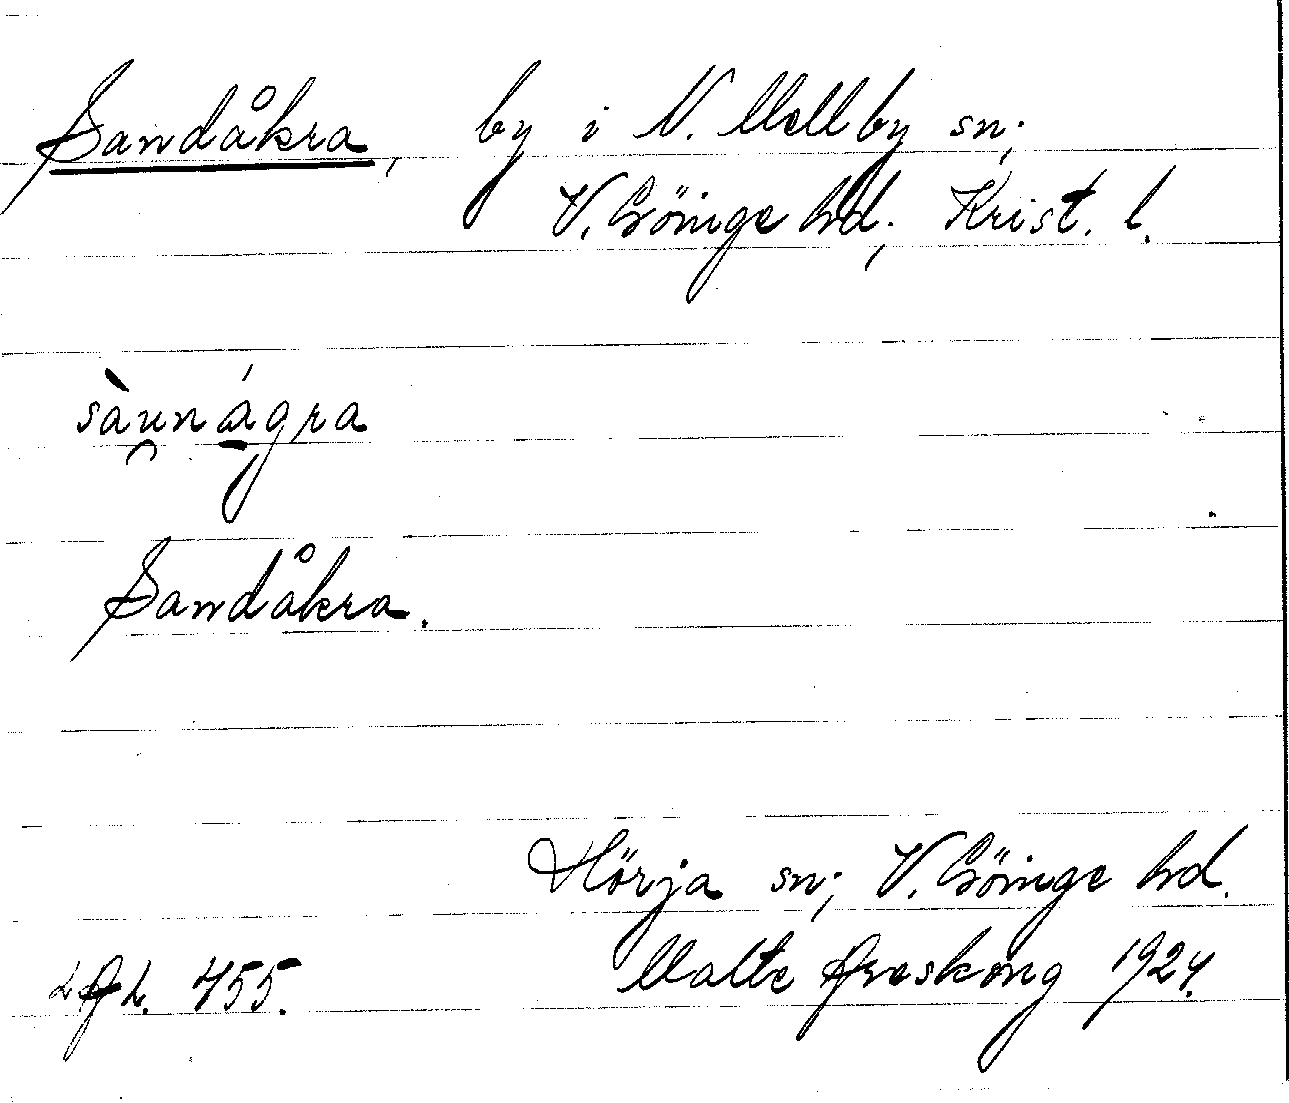 Sandåkra, by i N. Mellby sn;
V. Göinge hd; Krist. l.
sàu̯nágra
Sandåkra.
Hörja sn; V. Göinge hd.
Malte Areskoug 1924.
455.